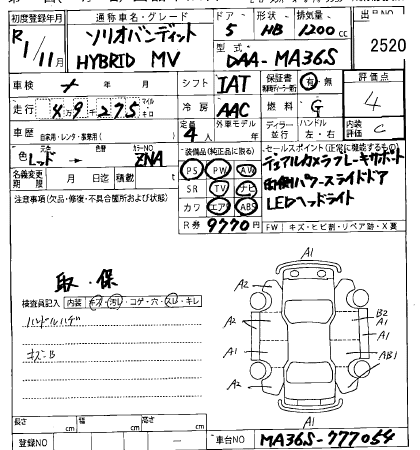 初度登録年月 通称車名・グレード ドア 形状 排気量 出品NO
R1/11月 ソリオバンディット HYBRID MV 5 HB 1200cc 2520
型式 DAA-MA36S
車検 年 月 シフト IAT 保証書 有・無 評価点 4
走行 4万9千275 マイル キロ 冷房 AAC 燃料 G 内装評価 C
車歴 自家用・レンタ・事業用( ) 定員 4人 外車モデル 年 ディーラー 並行 ハンドル 左・右
色 元色 レッド 色替 カラーNO ZNA
名義変更期限 月 日迄 積載 t
装備品(純正品に限る) PS PW AW SR TV ナビ カワ エアB ABS
R券 9770円
セールスポイント(正常に機能するもの)
デュアルカメラブレーキサポート
両側パワースライドドア
LEDヘッドライト
FW キズ・ヒビ割・リペア跡・X要
注意事項(欠品・修復・不具合箇所および状態)
取・保
検査員記入 内装 キズ・汚・コゲ・穴・スレ・キレ
ハンドルハゲ
キズB
A1
A2 A2
A2 B2 A1
A1 A1
A1 AB1
A2 A2
A1
長さ cm 幅 cm 高さ cm
登録NO 車台NO MA36S-777054